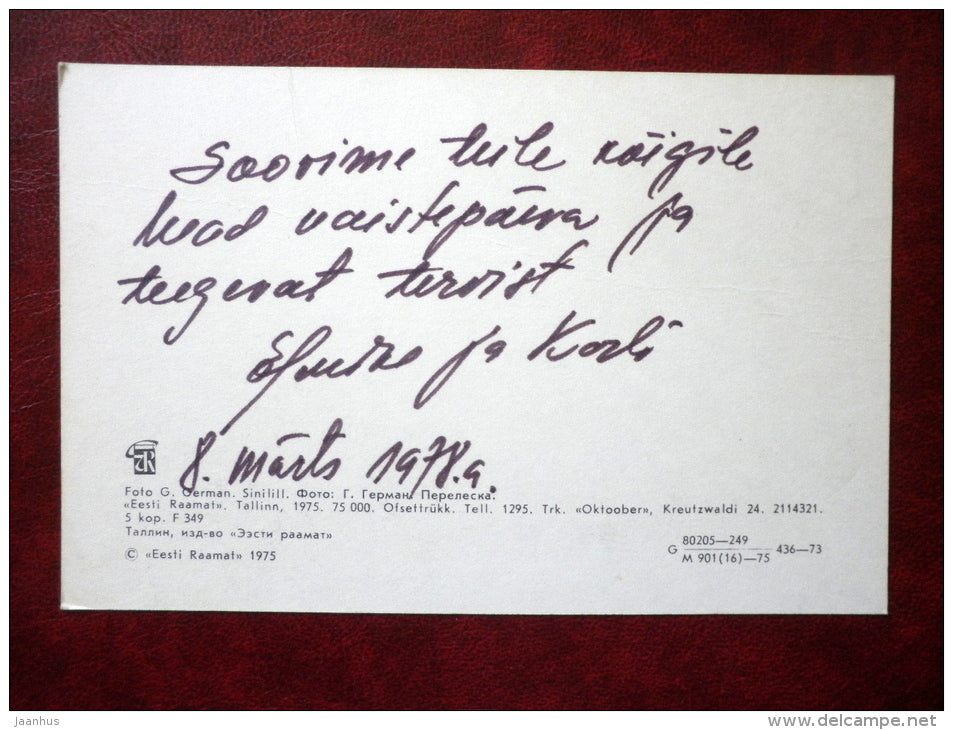 Soovime teile kõigile
head naistepäeva ja
tugevat tervist
ja Karli
8. märts 1978.a.
Foto G. German. Sinilill. Фото: Г. Герман. Перелеска.
«Eesti Raamat». Tallinn, 1975. 75 000. Ofsettrükk. Tell. 1295. Trk. «Oktoober», Kreutzwaldi 24. 2114321.
5 kop. F 349
Таллин, изд-во «Ээсти раамат»
© «Eesti Raamat» 1975
G 80205—249
М 901(16)—75 436—73
jaanhus
www.delcampe.net